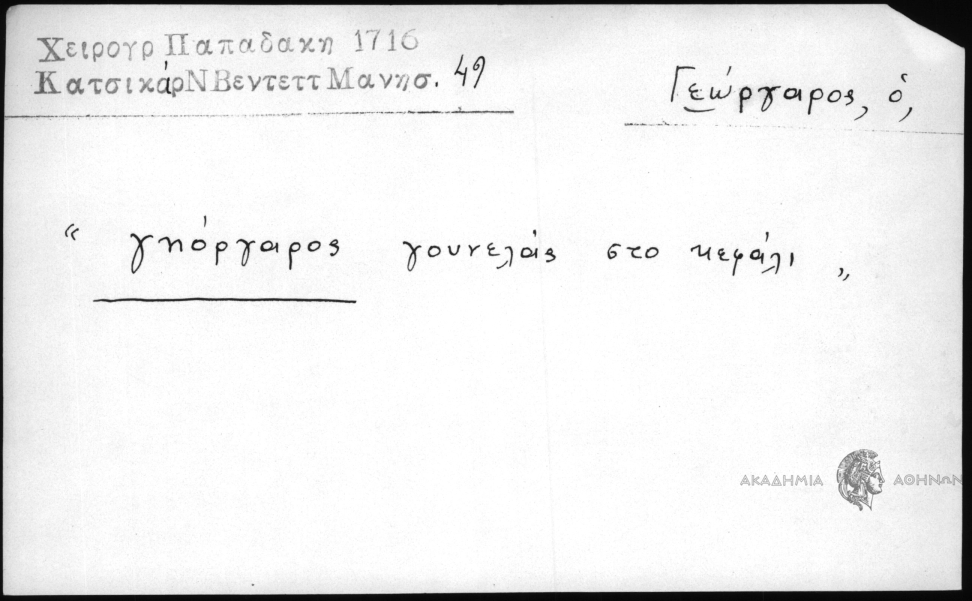 Χειρογρ Παπαδακη 1716
ΚατσικάρΝ Βεντεττ Μανησ. 49
Γεώργαρος, ὁ,
“ γηόργαρος γουνελάς στο κεφάλι „
ΑΚΑΔΗΜΙΑ ΑΘΗΝΩΝ